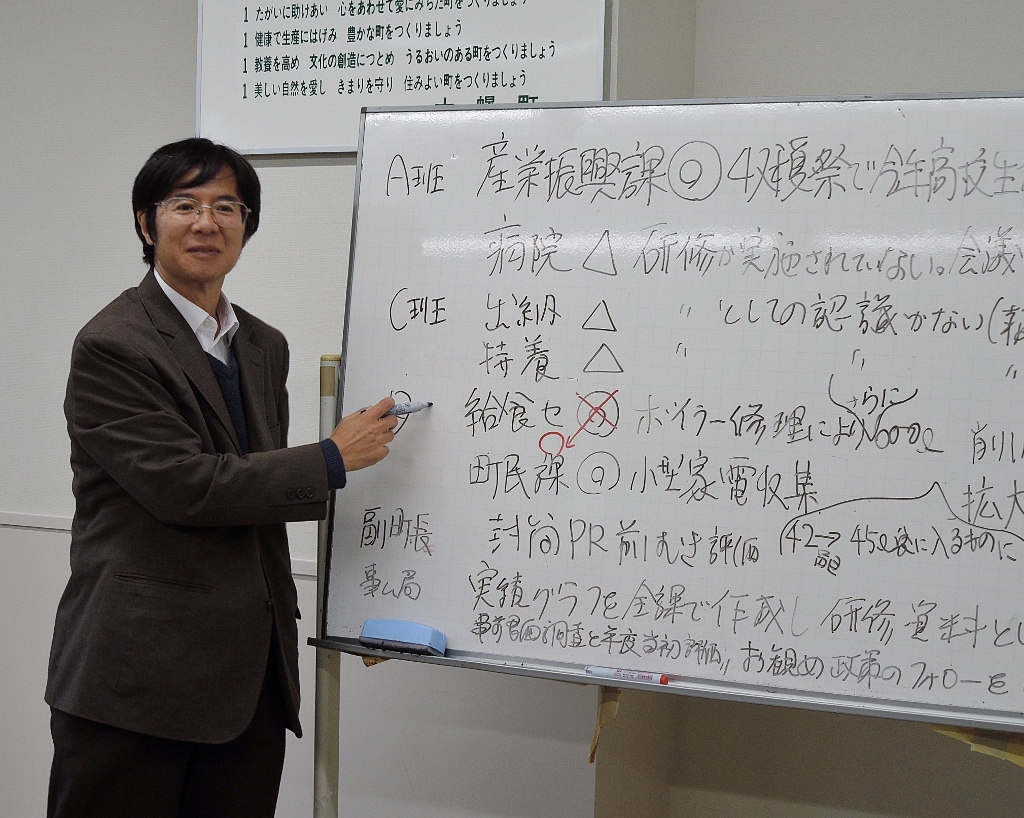 1 たがいに助けあい 心をあわせて愛にみちた町をつくりましょう
1 健康で生産にはげみ 豊かな町をつくりましょう
1 教養を高め 文化の創造につとめ うるおいのある町をつくりましょう
1 美しい自然を愛し きまりを守り 住みよい町をつくりましょう
幌町
A班 産業振興課 ◎ 収穫祭で今年高校生
病院 △ 研修が実施されていない。会議
C班 出納 △ 〃 としての認識がない(
特養 △ 〃 〃 〃
さらに
給食セ ◎ ボイラー修理により 600ℓ 削
町民課 ◎ 小型家電収集 拡大
副町長 封筒PR 前むき評価 (42→45ℓ袋に入るものに
事ム局 実績グラフを全課で作成し 研修資料とし
調査と年度当初評価 お観め政策のフォローを